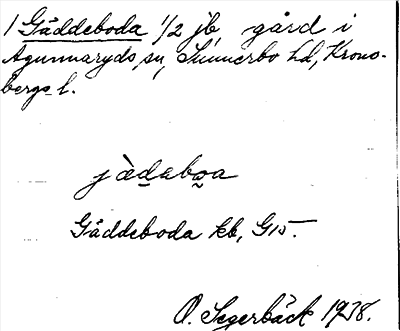 1 Gäddeboda 1/2 jb, gård i
Agunnaryds sn, Sunnerbo hd, Krono-
bergs l.
jàdeboa
Gäddeboda kb, G15.
O. Segerbäck 1938.